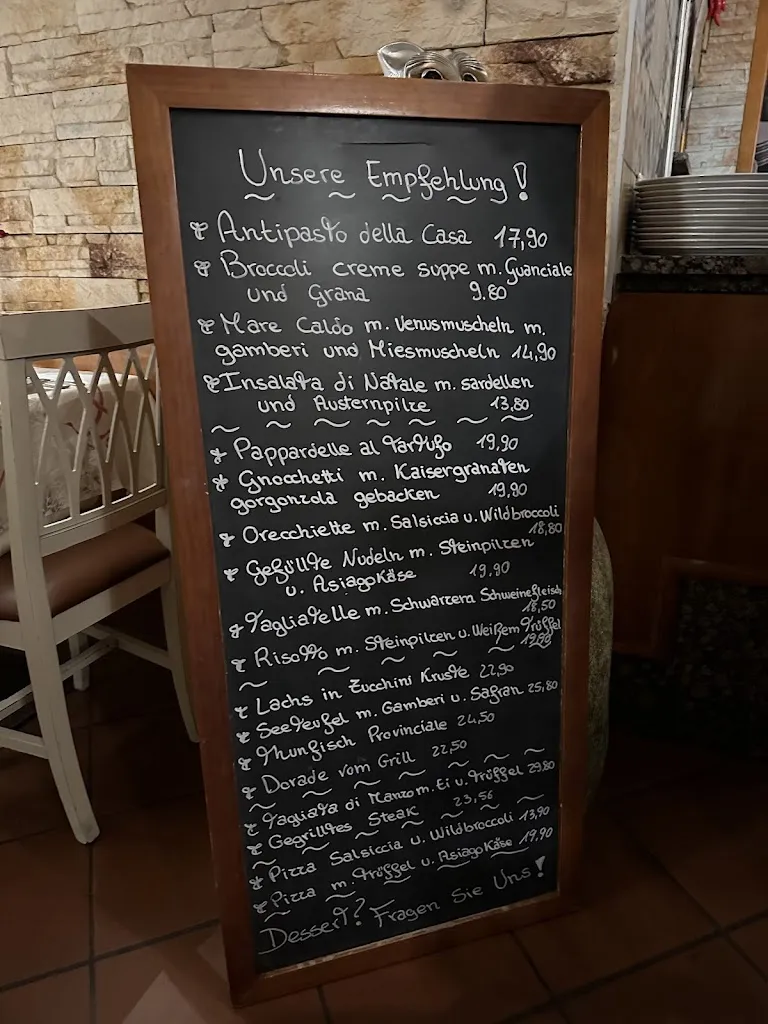 Unsere Empfehlung!
Antipasto della Casa 17,90
Broccoli creme suppe m. Guanciale
und Grana 9.80
Mare Caldo m. Venusmuscheln m.
gamberi und Miesmuscheln 14,90
Insalata di Natale m. sardellen
und Austernpilze 13,80
Pappardelle al Tartufo 19,90
Gnocchetti m. Kaisergranaten
gorgonzola gebacken 19,90
Orecchiette m. Salsiccia u. Wildbroccoli
18,80
Gefüllte Nudeln m. Steinpilzen
u. Asiago Käse 19,90
Tagliatelle m. Schwarzem Schweinefleisch
18,50
Risotto m. Steinpilzen u. Weißem Trüffel
Lachs in Zucchini Kruste 22,90
Seeteufel m. Gamberi u. Safran 25,80
Thunfisch Provinciale 24,50
Dorade vom Grill 22,50
Tagliata di Manzo m. Ei u. Trüffel 29.80
Gegrilltes Steak 23,56
Pizza Salsiccia u. Wildbroccoli 13,90
Pizza m. Trüffel u. Asiago Käse 19,90
Dessert? Fragen Sie Uns!